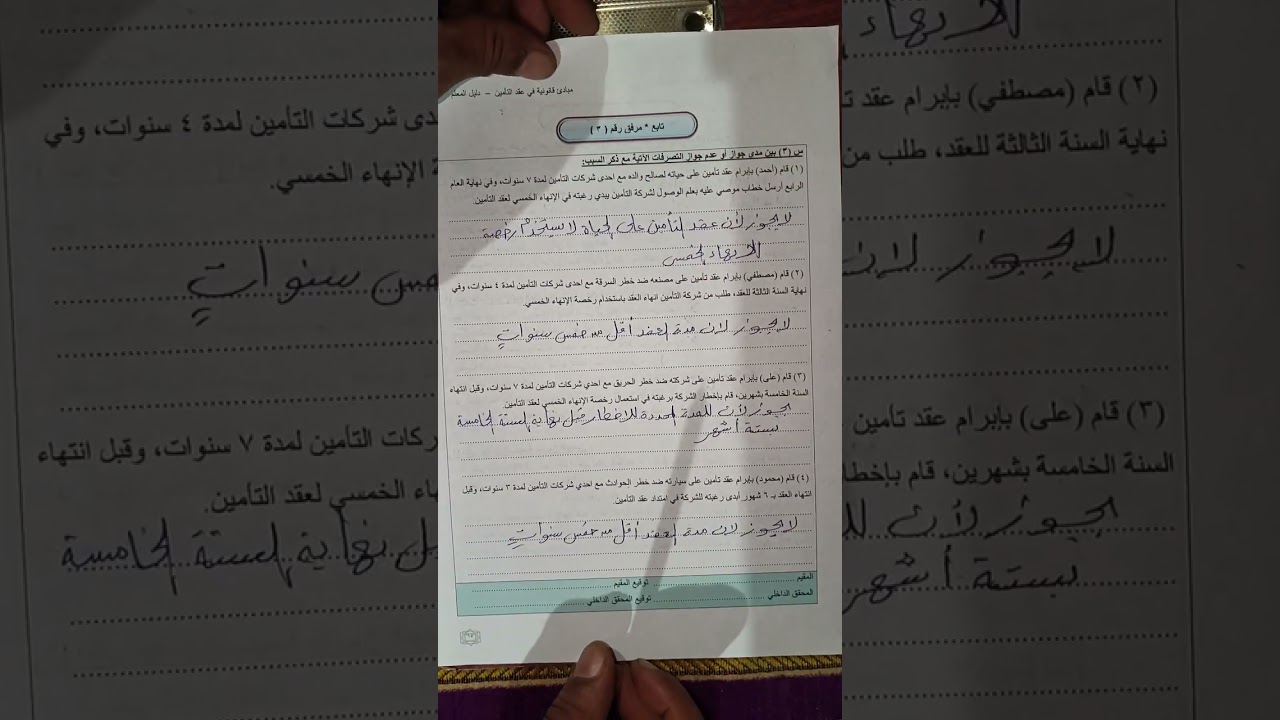 مبادئ قانونية في عقد التأمين – دليل المعلم
تابع * مرفق رقم ( ٣ )
س (٣) بين مدى جواز أو عدم جواز التصرفات الآتية مع ذكر السبب:
(١) قام (أحمد) بإبرام عقد تأمين على حياته لصالح والده مع احدى شركات التأمين لمدة ٧ سنوات، وفي نهاية العام
الرابع أرسل خطاب موصي عليه بعلم الوصول لشركة التأمين يبدي رغبته في الإنهاء الخمسي لعقد التأمين.
لا يجوز لأن عقد التأمين على الحياة لا يستخدم رخصة
للانهاء الخمسى
(٢) قام (مصطفي) بإبرام عقد تأمين على مصنعه ضد خطر السرقة مع احدى شركات التأمين لمدة ٤ سنوات، وفي
نهاية السنة الثالثة للعقد، طلب من شركة التأمين انهاء العقد باستخدام رخصة الإنهاء الخمسي.
لا يجوز لان مدة العقد أقل من خمس سنوات
(٣) قام (على) بإبرام عقد تأمين على شركته ضد خطر الحريق مع احدي شركات التأمين لمدة ٧ سنوات، وقبل انتهاء
السنة الخامسة بشهرين، قام بإخطار الشركة برغبته في استعمال رخصة الإنهاء الخمسي لعقد التأمين.
يجوز لأن المدة المحددة للاخطار قبل نهاية السنة الخامسة
بستة أشهر
(٤) قام (محمود) بإبرام عقد تأمين على سيارته ضد خطر الحوادث مع احدي شركات التأمين لمدة ٣ سنوات، وقبل
انتهاء العقد بـ ٦ شهور أبدى رغبته للشركة في امتداد عقد التأمين.
لا يجوز لان مدة العقد أقل من خمس سنوات
المقيم توقيع المقيم
المحقق الداخلي توقيع المحقق الداخلي